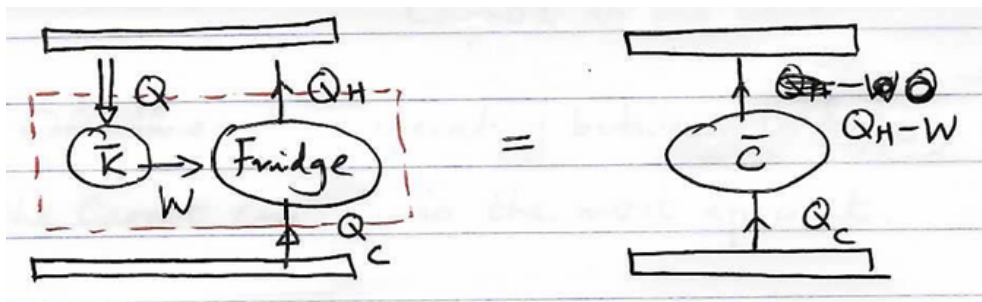 Q
Q_H
K̄
W
Fridge
Q_C
=
Q_H-W
C̄
Q_C